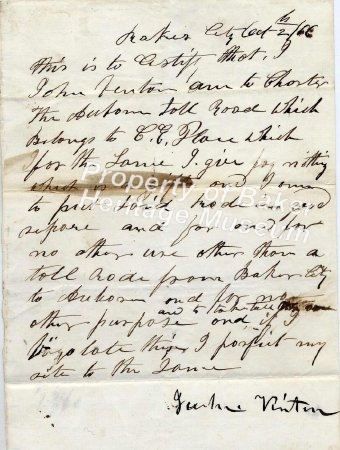 Baker City Oct 2th/66
this is to Certify that I
John Venton am to Charter
the Auborn toll Road which
Belongs to E.C. Place which
for the Same I give
which is and I am
to put Said Rode in good
repare and for and for
no other use other than a
toll Rode from Baker City
to Auborn and for no
and to take toll
other purpose and if I
this I forfit my
rite to the Same
Vinton
Property of Baker
Heritage Museum